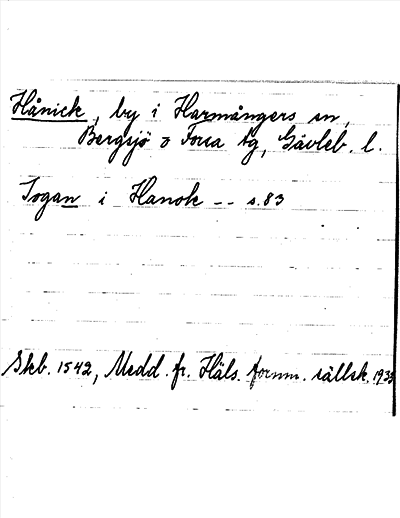 Hånick, by i Harmångers sn,
Bergsjö o Forsa tg, Gävleb. l.
Togan i Hanok -- s. 83
Skb. 1542, Medd. fr. Häls. fornm. sällsk. 1933